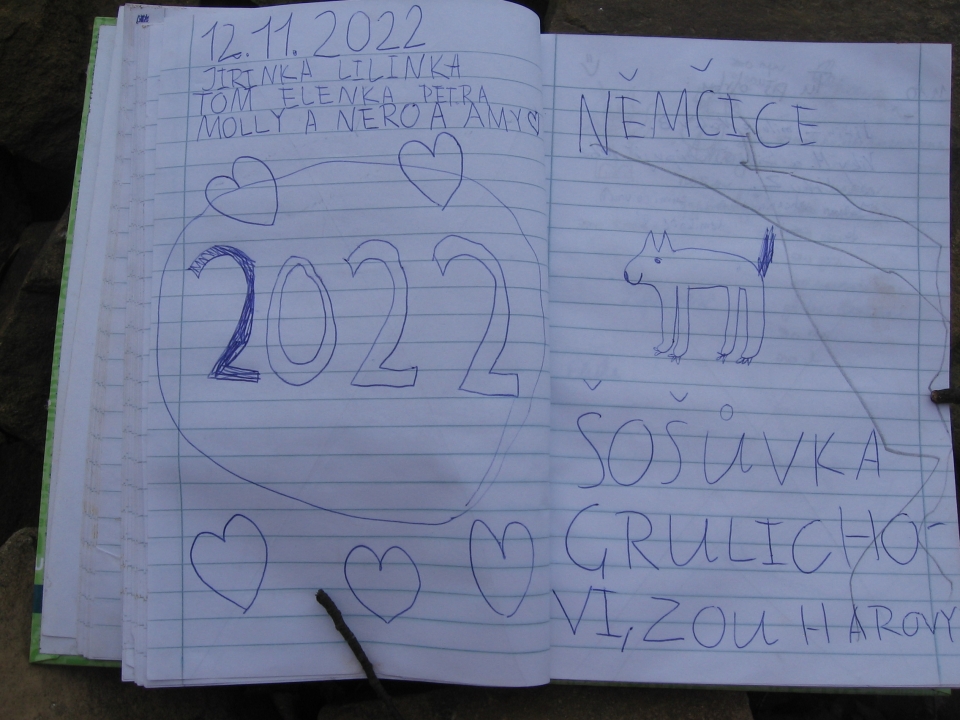 12.11.2022
JIŘINKA LILINKA
TOM ELENKA PETRA
MOLLY A NERO A AMY
2022
NĚMČICE
ŠOŠŮVKA
GRULICHO-
VI, ZOUHAROVY